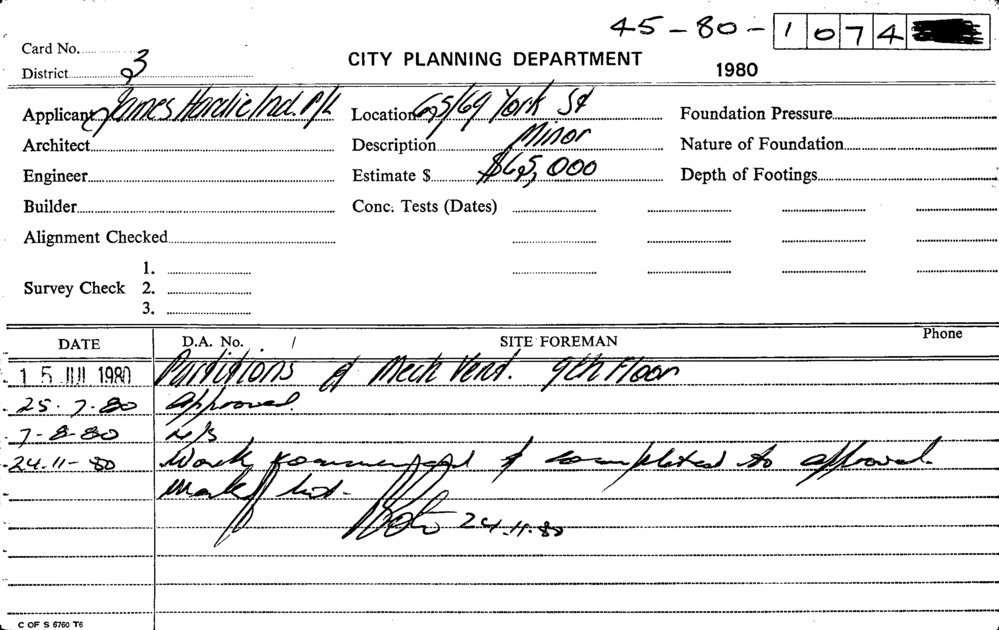 45-80-1074
Card No.
District 3
CITY PLANNING DEPARTMENT
1980
Applicant James Hardie Ind. P/L
Location 65/69 York St
Foundation Pressure
Architect
Description Minor
Nature of Foundation
Engineer
Estimate $ $65,000
Depth of Footings
Builder
Conc. Tests (Dates)
Alignment Checked
Survey Check
1.
2.
3.
DATE
D.A. No.
SITE FOREMAN
Phone
15 JUL 1980 Partitions & Mech Vent. 9th Floor
25.7.80 Approved.
7-8-80 N/S
24.11-80 Work commenced & completed to approval.
Mark off
24.11.80
C OF S 6760 T6